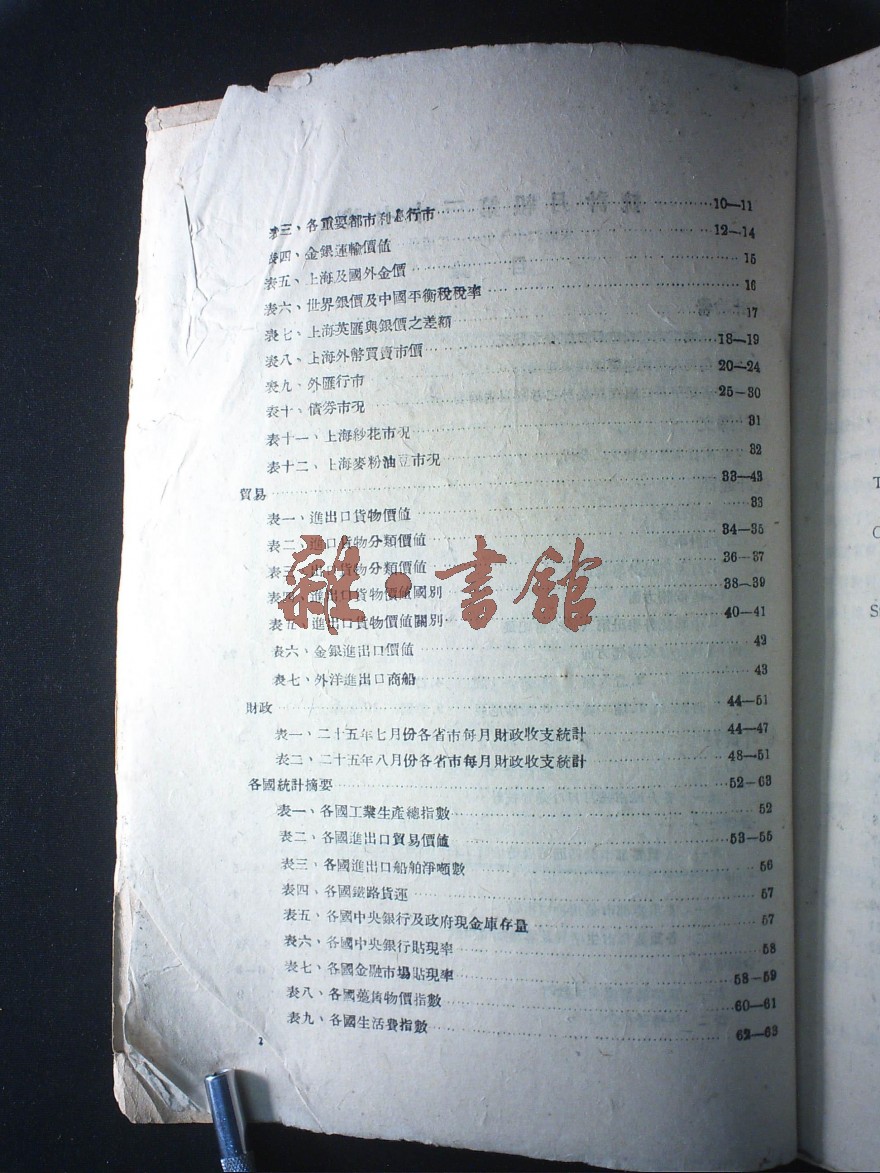 表三、各重要都市利息行市……10—11
表四、金銀運輸價値……12—14
表五、上海及國外金價……15
表六、世界銀價及中國平衡稅稅率……16
表七、上海英匯與銀價之差額……17
表八、上海外幣買賣市價……18—19
表九、外匯行市……20—24
表十、債券市况……25—30
表十一、上海紗花市况……31
表十二、上海麥粉油豆市况……32
貿易……33—43
表一、進出口貨物價値……33
表二、進口貨物分類價値……34—35
表三、出口貨物分類價値……36—37
表四、進出口貨物價値國別……38—39
表五、進出口貨物價値關別……40—41
雜·書館
表六、金銀進出口價値……42
表七、外洋進出口商船……43
財政……44—51
表一、二十五年七月份各省市每月財政收支統計……44—47
表二、二十五年八月份各省市每月財政收支統計……48—51
各國統計摘要……52—63
表一、各國工業生產總指數……52
表二、各國進出口貿易價値……53—55
表三、各國進出口船舶淨噸數……56
表四、各國鐵路貨運……57
表五、各國中央銀行及政府現金庫存量……57
表六、各國中央銀行貼現率……58
表七、各國金融市場貼現率……58—59
表八、各國躉售物價指數……60—61
表九、各國生活費指數……62—63
2